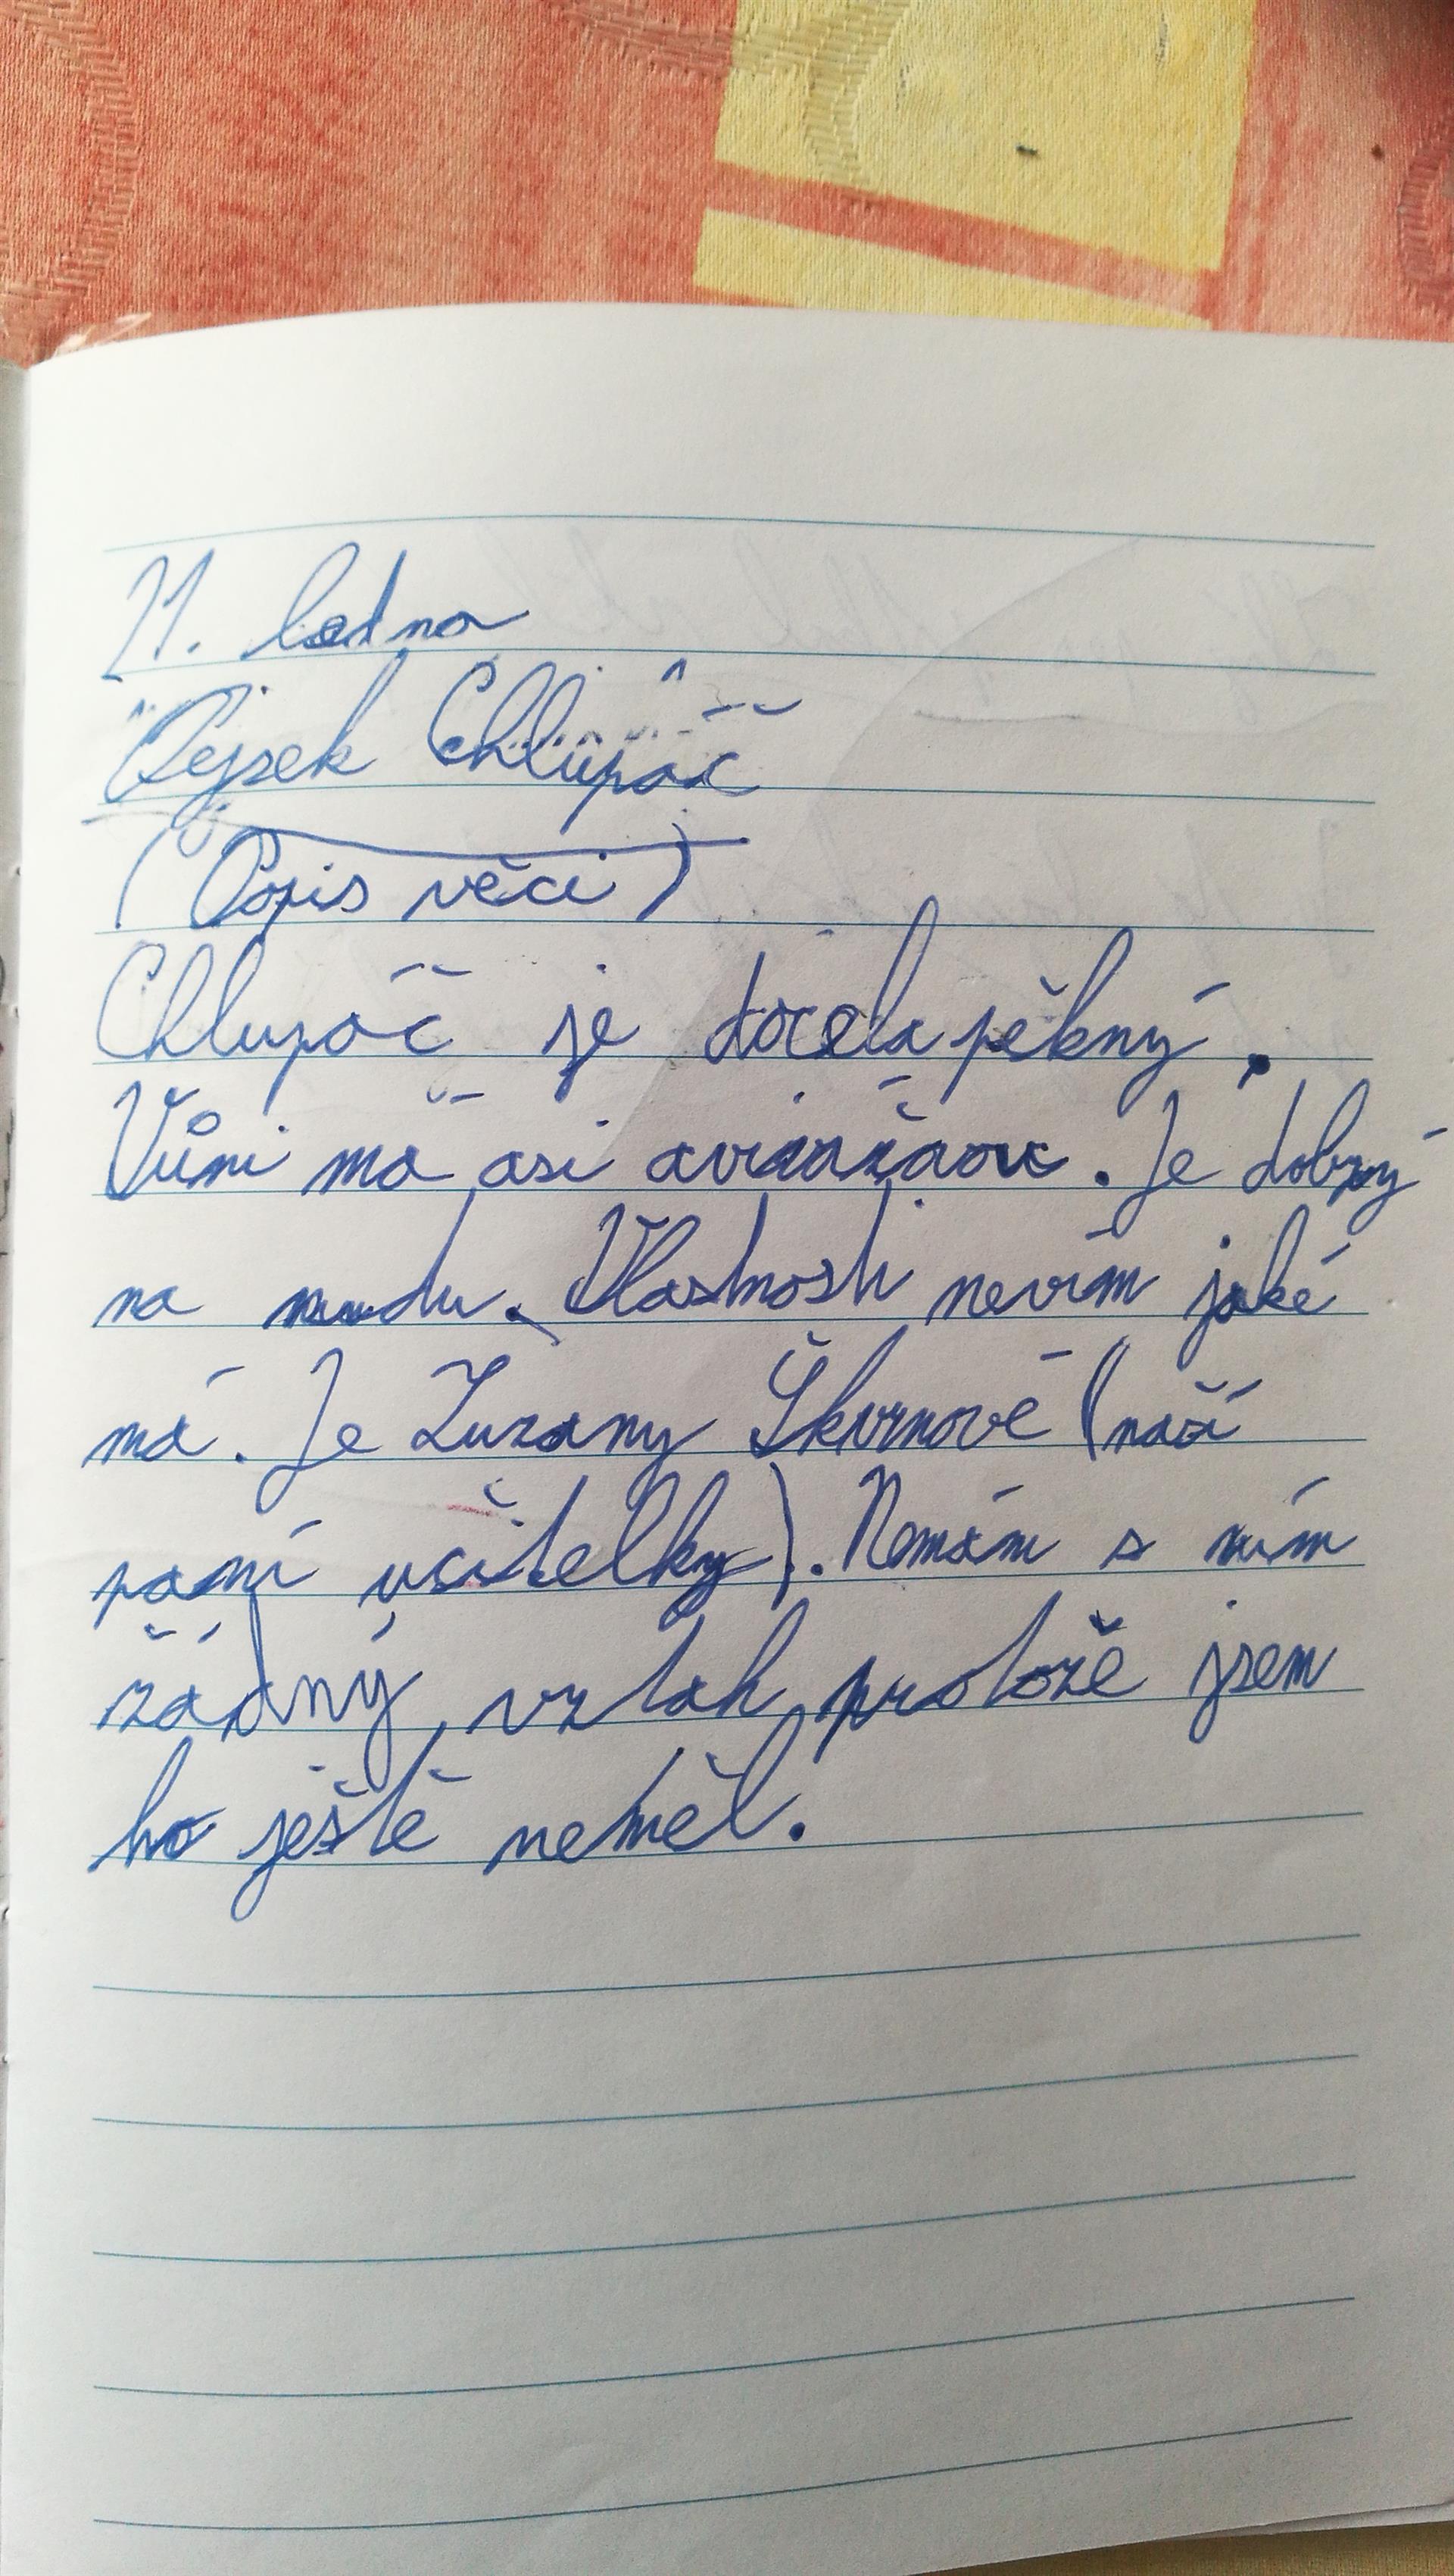 21. ledna
Pejsek Chlupáč
(Popis věci)
Chlupáč je docela pěkný.
Vůni má asi avivážaovou. Je dobrý
na nudu. Vlastnosti nevím jaké
má. Je Zuzany Škvrnové (naší
paní učitelky). Nemám s ním
žádný vztah protože jsem
ho ještě neměl.